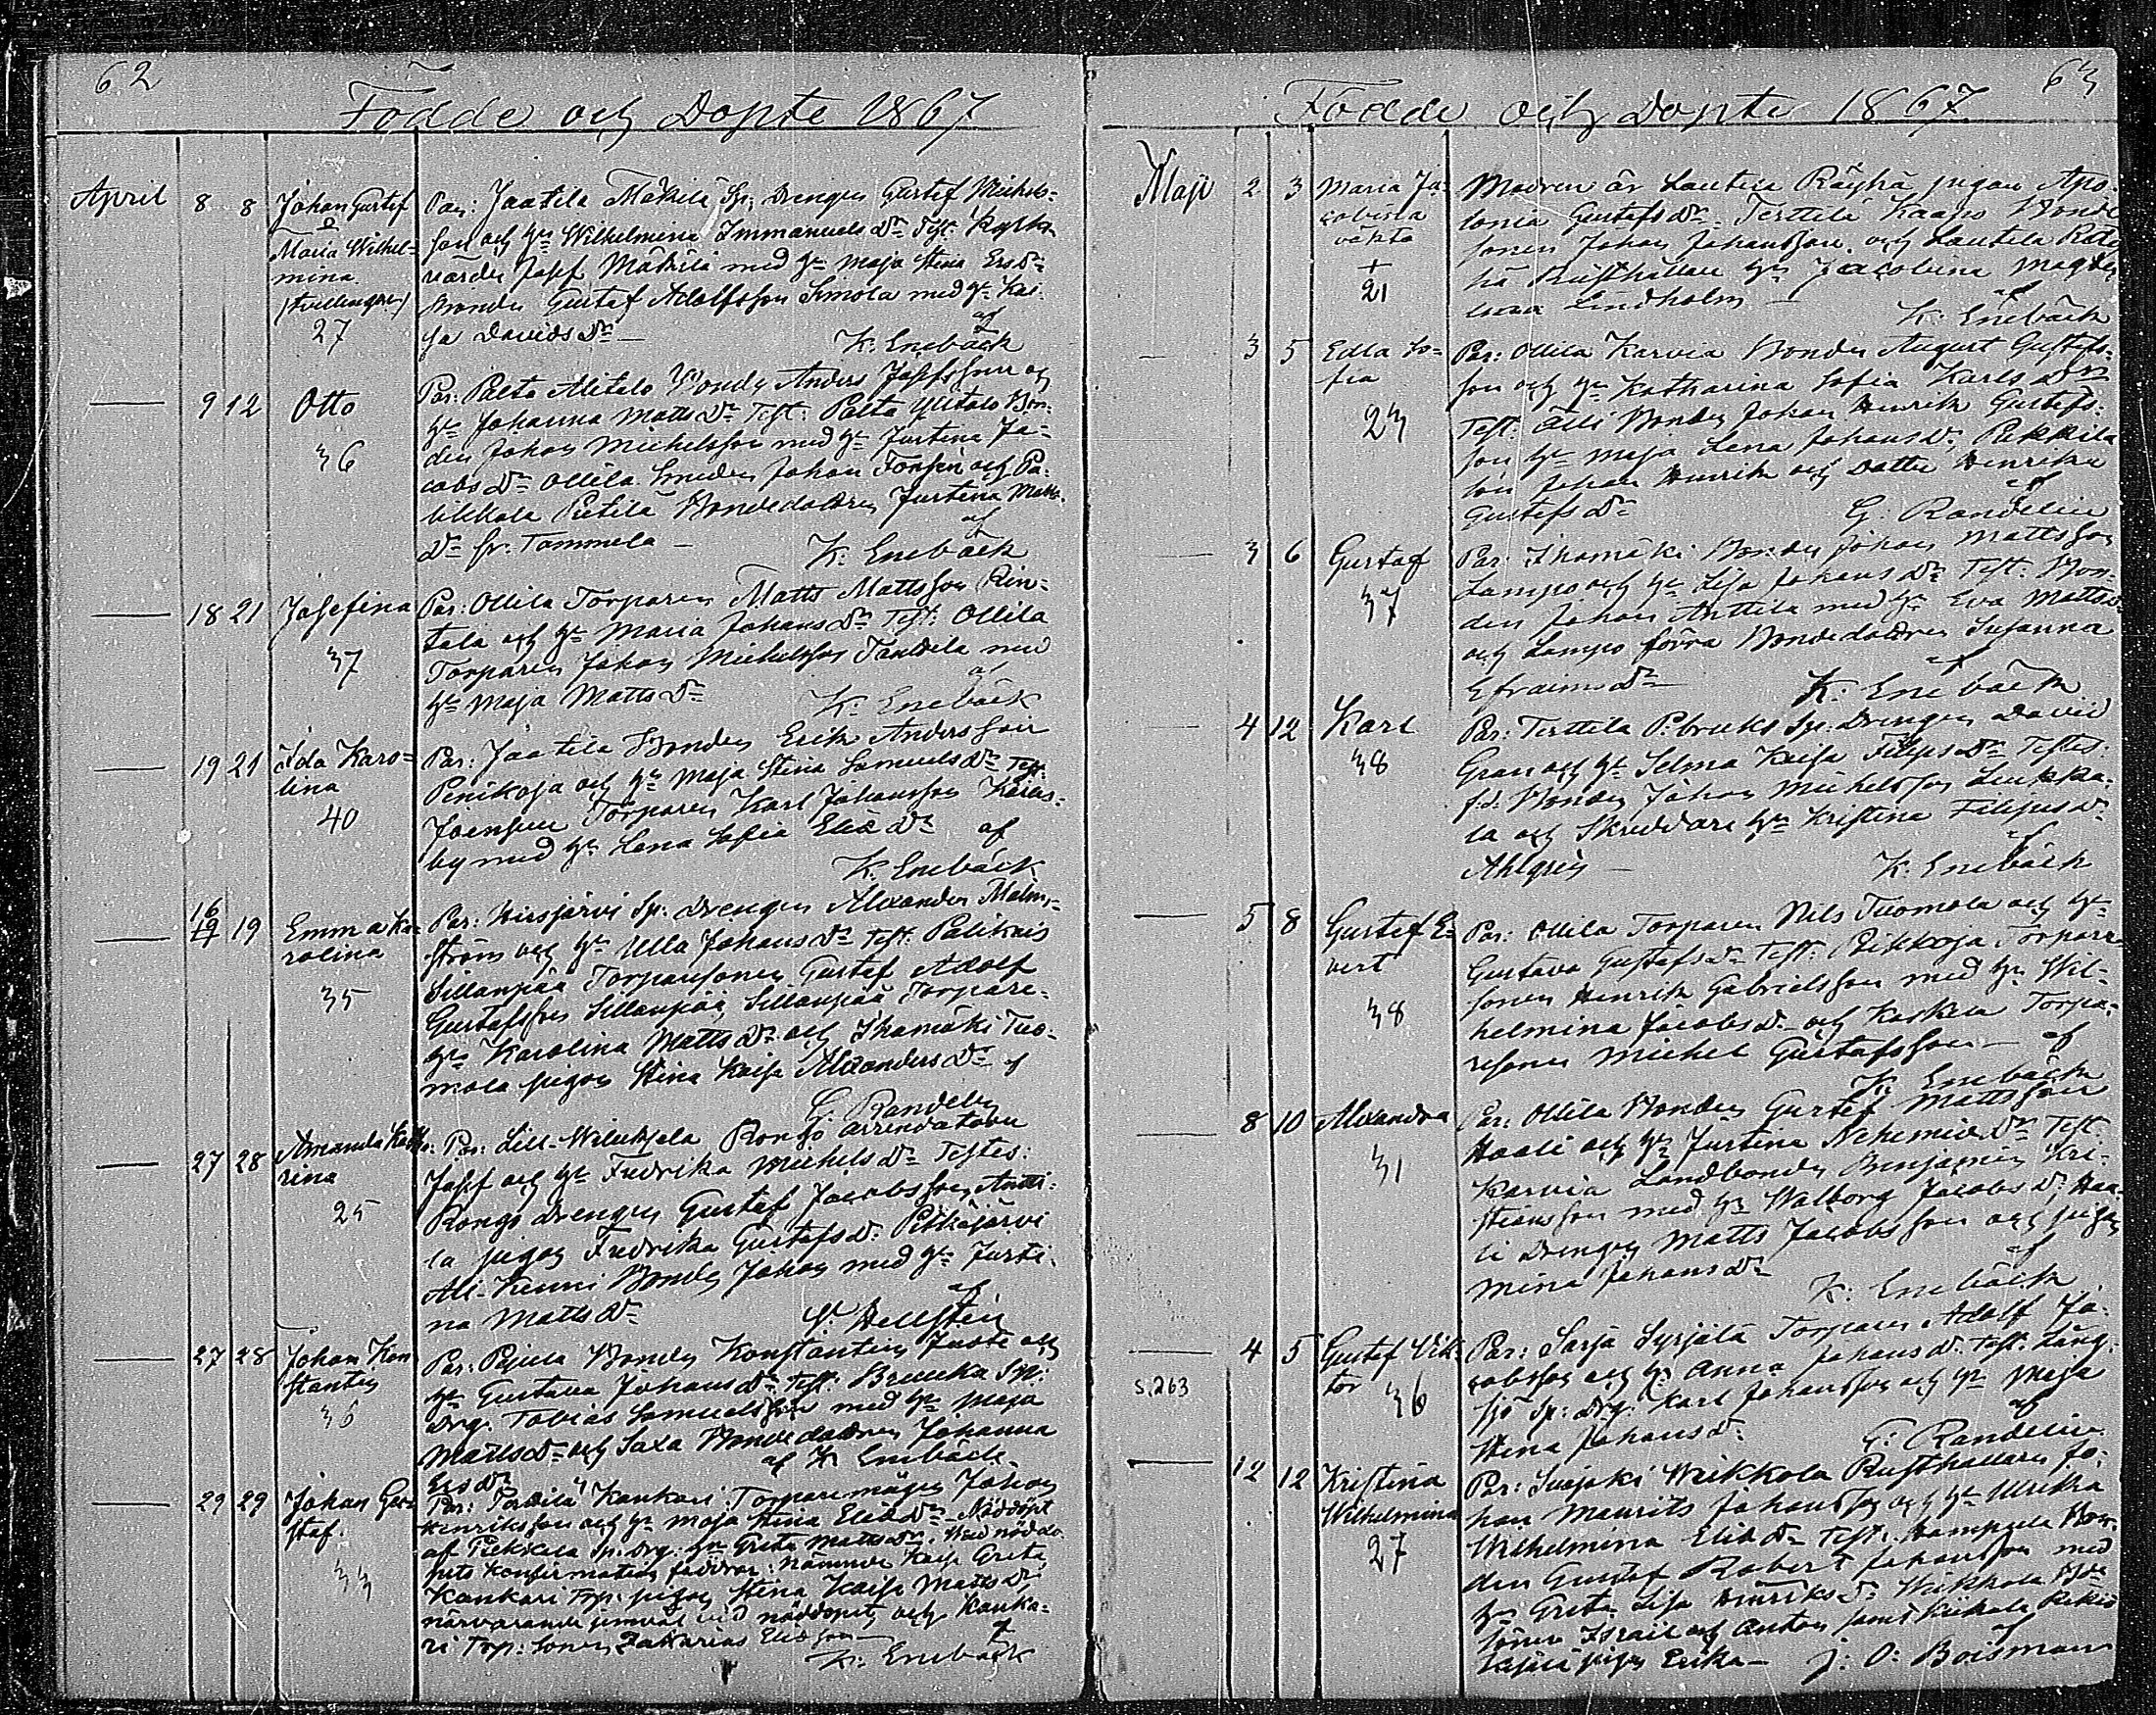 62
Födde och Döpte 1867
April 8 8 Johan Gustef
o
Maria Wilhel=
mina
(tvillingar)
27
Par: Jaatila Mäkilä Sp. Drengen Gustef Michels=
son och h: Wilhelmina Immanuels Dr Test. Kyrko
värden Josef Mäkilä med h: Maja Stina Ers Dr
Bonden Gustaf Adolfsson Simola med h: Kai=
sa Davids Dr —
af
K. Enebäck
— 9 12 Otto
36
Par: Palta Alitalo Bonden Anders Josefsson och
h: Johanna Matts Dr Test: Palta Ylitalo Bon=
den Johan Michelsson med h: Justina Ja=
cobs Dr Ollila Smeden Johan Forsén och Pa=
likkala Pietilä Bondedottren Justina Matts
Dr fr. Tammela —
af
K. Enebäck
— 18 21 Josefina
37
Par: Ollila Torparen Matts Mattsson Rin=
tala och h: Maria Johans Dr Test: Ollila
Torparen Johan Michelsson med
h: Maja Matts Dr
af
K. Enebäck
— 19 21 Ida Karo=
lina
40
Par: Jaatila Bonden Erik Andersson
Penikoja och h: Maja Stina Samuels Dr Test.
Joensuu Torparen Karl Johansson
by med h: Lena Sofia Eliæ Dr af
K. Enebäck
16
— 19 Emma Ka=
rolina
35
Par: Sp. Drengen Alexander Malm=
ström och h: Ulla Johans Dr Test. Palikais
Sillanpää Torparsonen Gustaf Adolf
Gustafsson Sillanpää, Sillanpää Torpare=
h: Karolina Matts Dr och Ihamäki Tuo=
mola pigan Stina Kaisa Alexanders Dr af
G. Randelin
— 27 28 Amanda Katha=
rina
25
Par: Lill- Rongo arrendatorn
Josef och h: Fredrika Michels Dr Testes:
Rongo drengen Gustef Jacobsson, Antti=
la pigan Fredrika Gustafs Dr Pitkäjärvi
Ali-Kenni Bonden Johan med h: Justi=
na Matts Dr
af
Hellstén
— 27 28 Johan Kon
stantin
36
Par: Pajula Bonden Konstantin Juste och
h: Gustava Johans Dr Test. Sp:
Drg. Tobias Samuelsson med h: Maja
Matts Dr och Saxa Bondedottren Johanna
Ers Dr
af K. Enebäck
— 29 29 Johan Gu=
staf.
33
Par: Kankari Torparemågen Johan
Henriksson och h: Maja Stina Eliæ Dr Nöddöpt
af Pekkala Sp. Drg. h: Greta Matts Dr. Wid nöddo=
pets konfirmation faddrar: nämnde Greta
Kankari Torp. pigan Stina Kaisa Matts Dr
närvarande jemväl vid nöddopet och Kanka=
ri Torp: Sonen Zakarias Eliæson —
af
K. Enebäck
63
Födde och Döpte 1867.
Maji 2 3 Maria Ja=
cobina
oäkta
+
21
Modren är Lautela Räyhä pigan Apo=
lonia Gustafs Dr. Terttilä Kaapo Bonde
sonen Johan Johansson och Lautela
Rusthållare h: Jacobina Magda
lena Lindholm —
af
K. Enebäck
— 3 5 Edla So=
fia
23
Par: Ollila Karvia Bonden August Gustafs=
son och h: Katharina Sofia Karls Dr
Test: Olli Bonden Johan Henrik Gustafs=
son h: Maja Lena Johans Dr, Pekkila
son Johan Henrik och Dotter Henrika
Gustafs Dr
af
G. Randelin
— 3 6 Gustaf
37
Par: Ihamäki Bonden Johan Mattsson
Lampo och h: Lisa Johans Dr Test: Bon=
den Johan Anttila med h: Eva Matts Dr
och Lampo förra Bondedottren Susanna
Efraims Dr
af
K. Enebäck
— 4 12 Karl
38
Par: Terttilä P:bruks Sp. Drengen David
Gran och h: Selma Kaisa Filips Dr Testes:
f.d. Bonden Johan Michelsson
la och Skreddare h: Kristina Filipus Dr
Ahlgrén —
af
K. Enebäck
— 5 8 Gustaf E=
vert
38
Par: Ollila Torparen Nils Tuomola och h:
Gustava Gustafs Dr Test: Torpare
sonen Henrik Gabrielsson med h: Wil=
helmina Jacobs Dr och Torpa=
resonen Michel Gustafsson — af
K. Enebäck
— 8 10 Alexandra
31
Par: Ollila Bonden Gustef Mattsson
Haali och h: Justina Nehemiæ Dr Test.
Karvia Landbonden Benjamin Kri=
stiansson med h: Walborg Jacobs Dr, Haa=
li Drengen Matts Jacobsson och pigan
Mina Johans Dr
af
K. Enebäck
— 4 5 Gustaf Vik=
tor
36
s. 263
Par: Sarja Syrjälä Torparen Adolf Ja=
cobsson och h: Anna Johans Dr Test. Lång=
sjö Sp: Drg: Karl Johansson och h: Maja
Stina Johans Dr
af
G. Randelin
— 12 12 Kristina
Wilhelmina
27
Par: Suojoki Weikkola Rusthållaren Jo=
han Maurits Johansson och h: Ulrika
Wilhelmina Eliæ Dr Test. Bon=
den Gustaf Robert Johansson med
h: Greta Lisa Henriks Dr Weikkola
söner Israel och Anton samt
pigan Erika —
af
J. O. Boisman